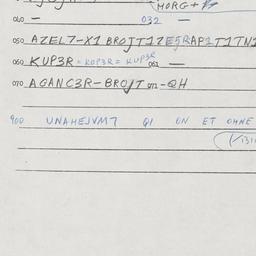 MORG+
040 — 032 —
050 AZEL7-X1 BROJTT1ZE5RAP1T1TN1
060 KUP3R = KUP3R = KUP3R 061 —
070 AGANC3R-BROJT 071 -QH
900 UNAHEJVM7 QI ON ET OHNE